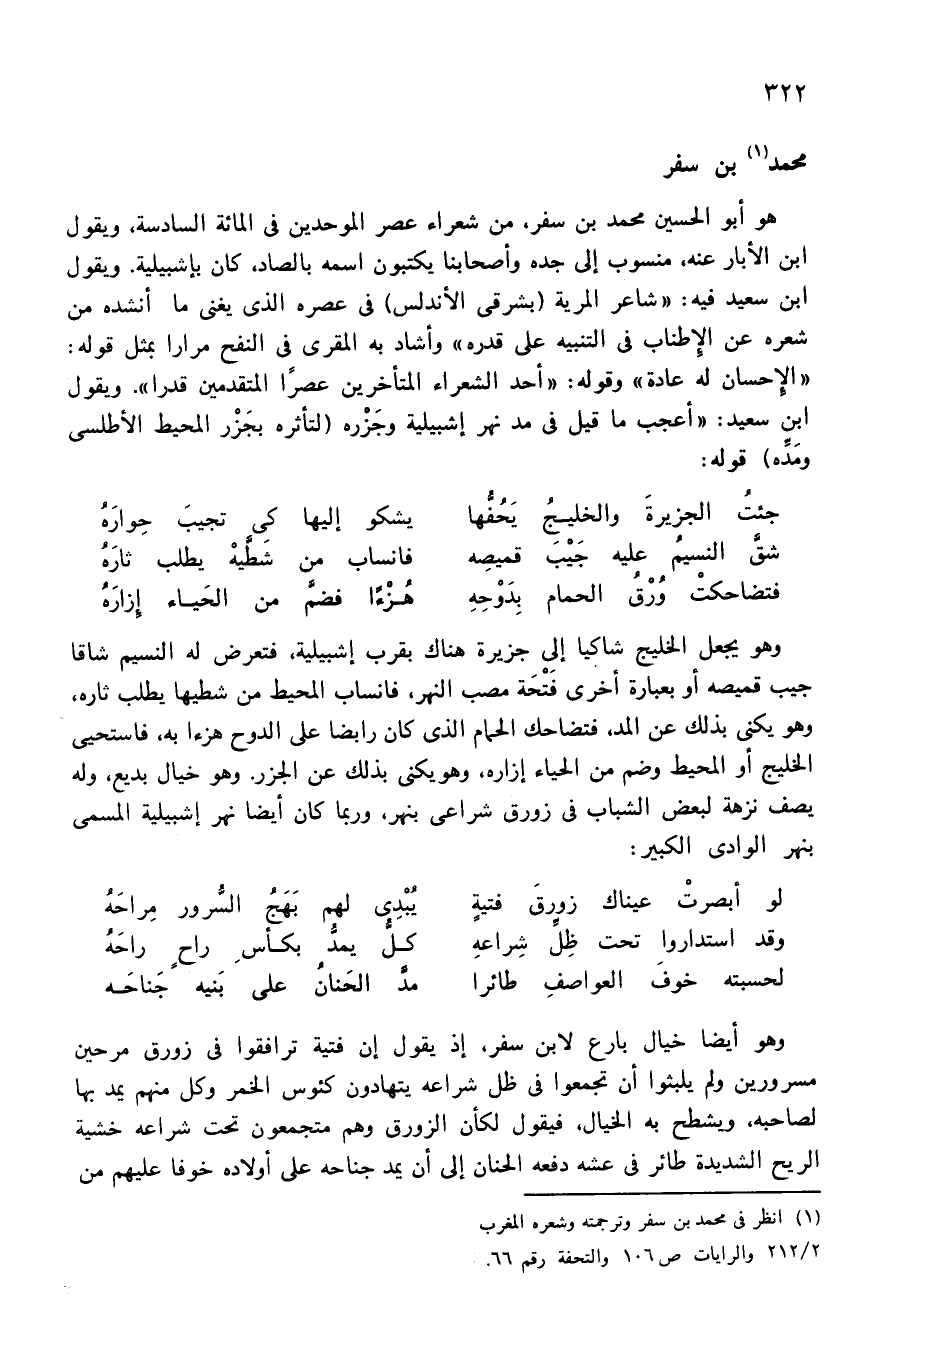 ٣٢٢
محمد(١) بن سفر
هو أبو الحسين محمد بن سفر، من شعراء عصر الموحدين فى المائة السادسة، ويقول
ابن الأبار عنه، منسوب إلى جده وأصحابنا يكتبون اسمه بالصاد، كان بإشبيلية. ويقول
ابن سعيد فيه: «شاعر المرية (بشرقى الأندلس) فى عصره الذى يغنى ما أنشده من
شعره عن الإطناب فى التنبيه على قدره» وأشاد به المقرى فى النفح مرارا بمثل قوله:
«الإحسان له عادة» وقوله: «أحد الشعراء المتأخرين عصرًا المتقدمين قدرا». ويقول
ابن سعيد: «أعجب ما قيل فى مد نهر إشبيلية وجَزْره (لتأثره بجَزْر المحيط الأطلسى
ومَدِّه) قوله:
جئتُ الجزيرةَ والخليجُ يَحُفُّها يشكو إليها كى تجيبَ حِوارَهُ
شقَّ النسيمُ عليه جَيْبَ قميصِه فانساب من شَطَّيْهْ يطلب ثارَهُ
فتضاحكتْ وُرْقُ الحمام بِدَوْحِهِ هُزْءًا فضمَّ من الحَياء إزارَهُ
وهو يجعل الخليج شاكيا إلى جزيرة هناك بقرب إشبيلية، فتعرض له النسيم شاقا
جيب قميصه أو بعبارة أخرى فَتْحَة مصب النهر، فانساب المحيط من شطيها يطلب ثاره،
وهو يكنى بذلك عن المد، فتضاحك الحمام الذى كان رابضا على الدوح هزءا به، فاستحيى
الخليج أو المحيط وضم من الحياء إزاره، وهو يكنى بذلك عن الجزر. وهو خيال بديع، وله
يصف نزهة لبعض الشباب فى زورق شراعى بنهر، وربما كان أيضا نهر إشبيلية المسمى
بنهر الوادى الكبير:
لو أبصرتْ عيناك زورقَ فتيةٍ يُبْدِى لهم بَهَجُ السُّرور مِراحَهُ
وقد استداروا تحت ظِلِّ شِراعهِ كلُّ يمدُّ بكأسِ راحٍ راحَهُ
لحسبته خوفَ العواصفِ طائرا مدَّ الحَنانُ على بَنيه جَناحَه
وهو أيضا خيال بارع لابن سفر، إذ يقول إن فتية ترافقوا فى زورق مرحين
مسرورين ولم يلبثوا أن تجمعوا فى ظل شراعه يتهادون كئوس الخمر وكل منهم يمد بها
لصاحبه، ويشطح به الخيال، فيقول لكأن الزورق وهم متجمعون تحت شراعه خشية
الريح الشديدة طائر فى عشه دفعه الحنان إلى أن يمد جناحه على أولاده خوفا عليهم من
(١) انظر فى محمد بن سفر وترجمته وشعره المغرب
٢١٢/٢ والرايات ص١٠٦ والتحفة رقم ٦٦.